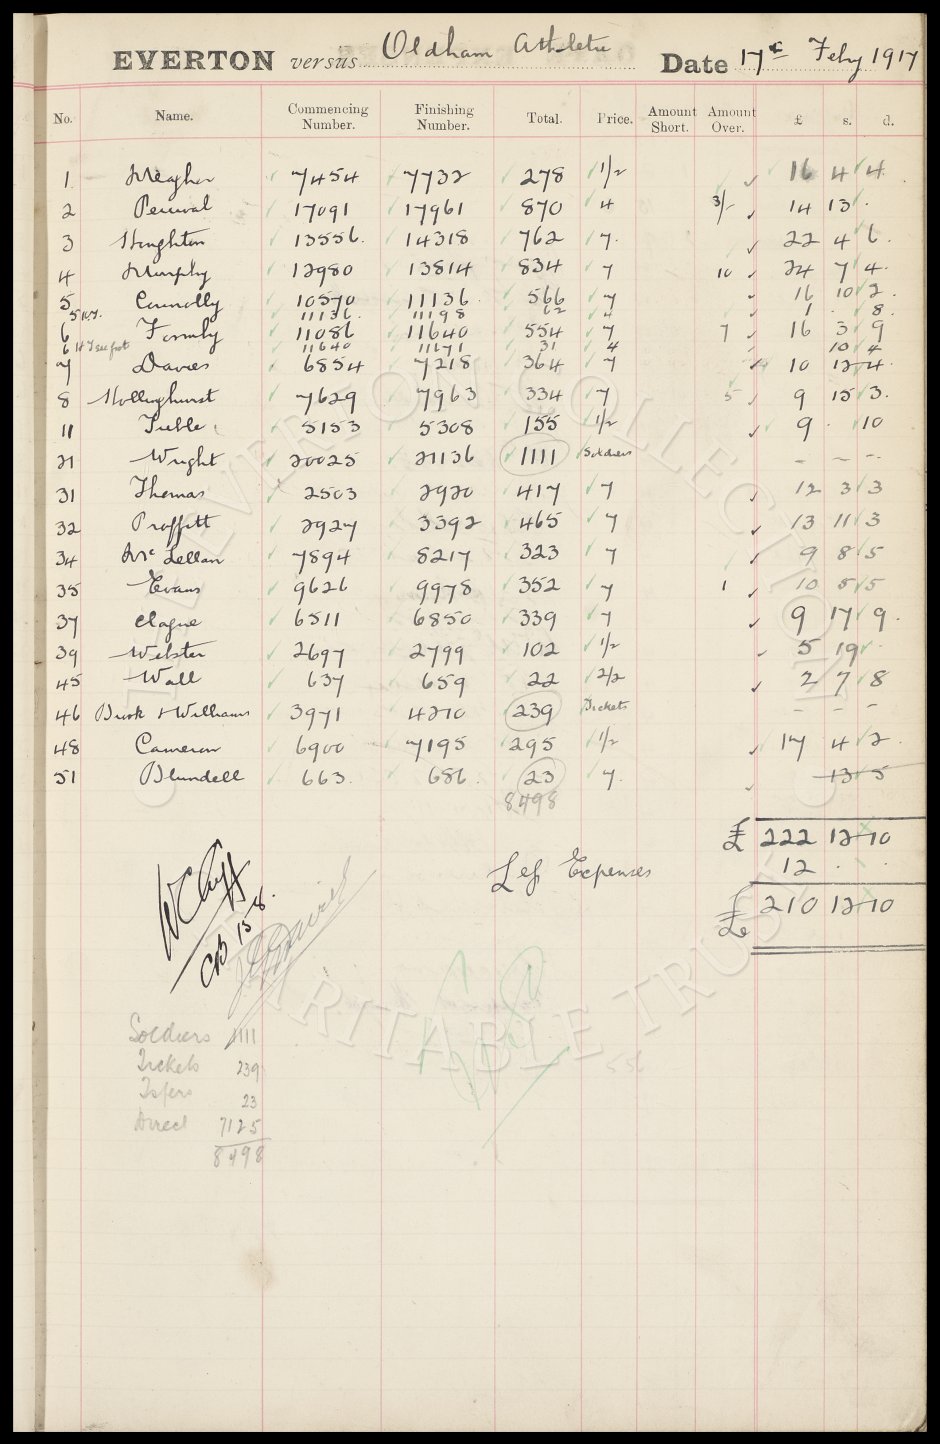 EVERTON versus Oldham Athletic Date 17th Feby 1917
No. Name. Commencing Number. Finishing Number. Total. Price. Amount Short. Amount Over. £ s. d.
1 Meagher 7454 7732 278 1/2 16 4 4
2 Percival 17091 17961 870 4 3/- 14 13 .
3 Houghton 13556 14318 762 7 22 4 6
4 Murphy 12980 13814 834 7 10 24 7 4
5 Connolly 10570 11136 566 7 16 10 2
5 11136 11198 62 1 . 8
6 Formby 11086 11640 554 7 7 16 3 9
6 11640 11671 31 4 10 4
7 Davies 6854 7218 364 7 10 12 4
8 Hollinghurst 7629 7963 334 7 5 9 15 3
11 Treble 5153 5308 155 1/2 9 . 10
21 Wright 20025 21136 1111 Soldiers - - -
31 Thomas 2503 2920 417 7 12 3 3
32 Proffitt 2927 3392 465 7 13 11 3
34 Mc Lellan 7894 8217 323 7 9 8 5
35 Evans 9626 9978 352 7 1 10 5 5
37 Clague 6511 6850 339 7 9 17 9
39 Webster 2697 2799 102 1/2 5 19 .
45 Wall 637 659 22 2/2 2 7 8
46 Buck & Williams 3971 4210 239 Tickets - - -
48 Cameron 6900 7195 295 1/2 17 4 2
51 Blundell 663 686 23 7 13 5
8498
£ 222 12 10
Less Expenses 12 . .
£ 210 12 10
W C Cuff
CB 15 8.
Soldiers 1111
Tickets 239
Tsfers 23
Direct 7125
8498
556
EVERTON COLLECTION
CHARITABLE TRUST